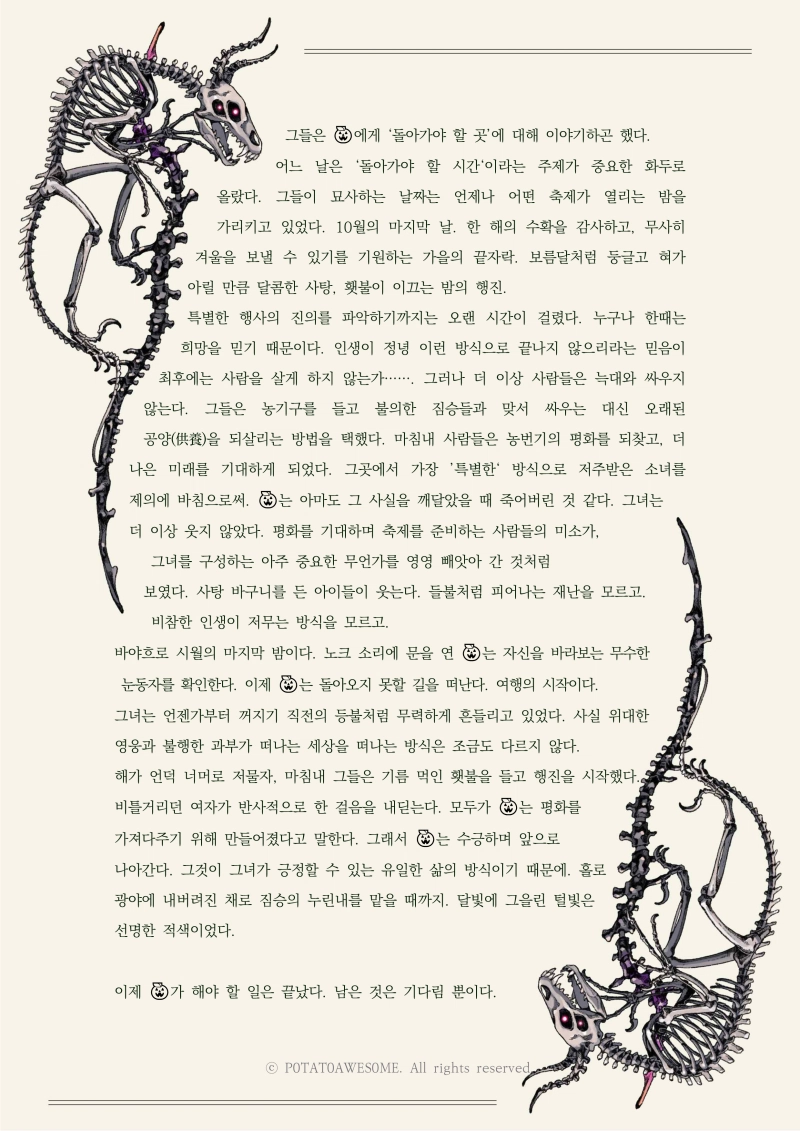 그들은 🎃에게 ‘돌아가야 할 곳’에 대해 이야기하곤 했다.
어느 날은 ‘돌아가야 할 시간‘이라는 주제가 중요한 화두로
올랐다. 그들이 묘사하는 날짜는 언제나 어떤 축제가 열리는 밤을
가리키고 있었다. 10월의 마지막 날. 한 해의 수확을 감사하고, 무사히
겨울을 보낼 수 있기를 기원하는 가을의 끝자락. 보름달처럼 둥글고 혀가
아릴 만큼 달콤한 사탕, 횃불이 이끄는 밤의 행진.
특별한 행사의 진의를 파악하기까지는 오랜 시간이 걸렸다. 누구나 한때는
희망을 믿기 때문이다. 인생이 정녕 이런 방식으로 끝나지 않으리라는 믿음이
최후에는 사람을 살게 하지 않는가……. 그러나 더 이상 사람들은 늑대와 싸우지
않는다. 그들은 농기구를 들고 불의한 짐승들과 맞서 싸우는 대신 오래된
공양(供養)을 되살리는 방법을 택했다. 마침내 사람들은 농번기의 평화를 되찾고, 더
나은 미래를 기대하게 되었다. 그곳에서 가장 ’특별한‘ 방식으로 저주받은 소녀를
제의에 바침으로써. 🎃는 아마도 그 사실을 깨달았을 때 죽어버린 것 같다. 그녀는
더 이상 웃지 않았다. 평화를 기대하며 축제를 준비하는 사람들의 미소가,
그녀를 구성하는 아주 중요한 무언가를 영영 빼앗아 간 것처럼
보였다. 사탕 바구니를 든 아이들이 웃는다. 들불처럼 피어나는 재난을 모르고.
비참한 인생이 저무는 방식을 모르고.
바야흐로 시월의 마지막 밤이다. 노크 소리에 문을 연 🎃는 자신을 바라보는 무수한
눈동자를 확인한다. 이제 🎃는 돌아오지 못할 길을 떠난다. 여행의 시작이다.
그녀는 언젠가부터 꺼지기 직전의 등불처럼 무력하게 흔들리고 있었다. 사실 위대한
영웅과 불행한 과부가 떠나는 세상을 떠나는 방식은 조금도 다르지 않다.
해가 언덕 너머로 저물자, 마침내 그들은 기름 먹인 횃불을 들고 행진을 시작했다.
비틀거리던 여자가 반사적으로 한 걸음을 내딛는다. 모두가 🎃는 평화를
가져다주기 위해 만들어졌다고 말한다. 그래서 🎃는 수긍하며 앞으로
나아간다. 그것이 그녀가 긍정할 수 있는 유일한 삶의 방식이기 때문에. 홀로
광야에 내버려진 채로 짐승의 누린내를 맡을 때까지. 달빛에 그을린 털빛은
선명한 적색이었다.
이제 🎃가 해야 할 일은 끝났다. 남은 것은 기다림 뿐이다.
ⓒ POTATOAWESOME. All rights reserved.